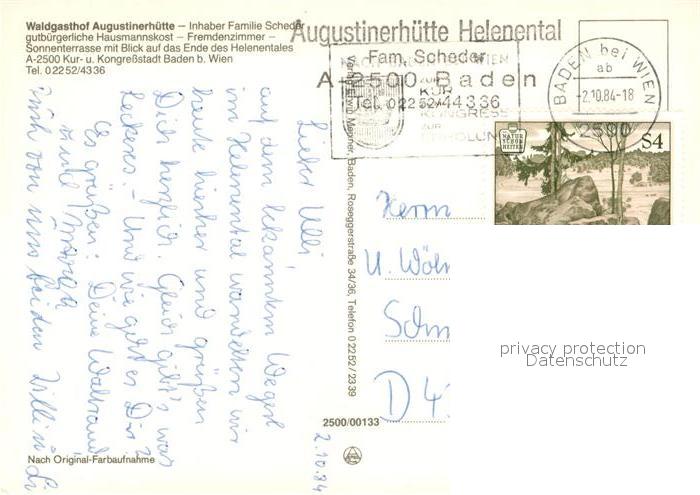 Waldgasthof Augustinerhütte — Inhaber Familie Scheder
gutbürgerliche Hausmannskost — Fremdenzimmer —
Sonnenterrasse mit Blick auf das Ende des Helenentales
A-2500 Kur- u. Kongreßstadt Baden b. Wien
Tel. 02252/4336
Augustinerhütte Helenental
Fam. Scheder
A-2500 Baden
Tel. 02252/44336
KUR
KONGRESS
ZUR
ERHOLUNG
BADEN bei WIEN
ab
-2.10.84-18
2500
NATUR
SCHÖN
HEITEN
S4
2.10.84
Lieber Ulli,
auf dem bekannten Wegerl
im Helenental wandelten wir
heute hierher und grüßen
Dich herzlich. Gleich gibt's was
Leckeres. - Und wie geht es Dir?
Es grüßen: Deine Waltraud
und
Euch von uns beiden
Verlag Erwin Mepner, Baden, Roseggerstraße 34/36, Telefon 02252/2339
Herrn
U. Wöh
Schm
D 4
privacy protection
Datenschutz
2500/00133
Nach Original-Farbaufnahme